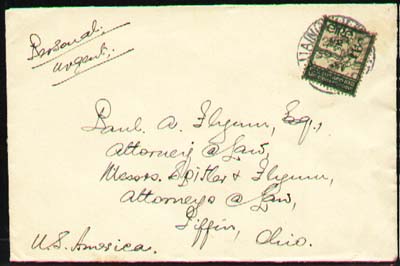 Personal.
Urgent.
Paul A. Flynn, Esq.,
Attorney @ Law,
Messrs. Spitler & Flynn,
Attorneys @ Law,
Tiffin, Ohio.
U.S. America.